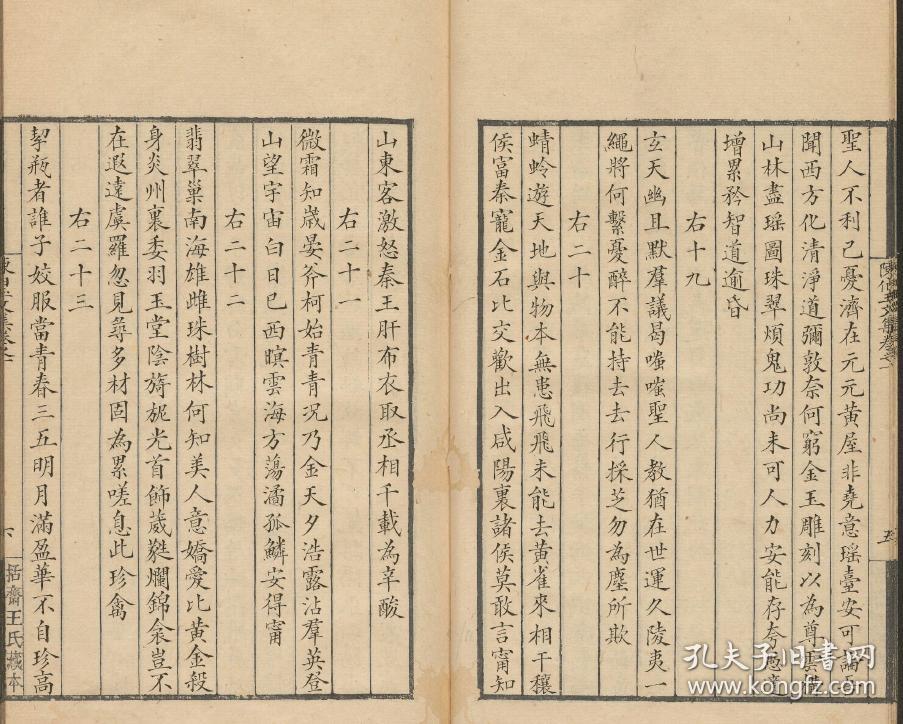 聖人不利己憂濟在元元黃屋非堯意瑤臺安可論
聞西方化清淨道彌敦奈何窮金玉雕刻以為尊雲構
山林盡瑶圖珠翠煩鬼功尚未可人力安能存夸愚適
增累矜智道逾昏
右十九
玄天幽且默羣議曷嗤嗤聖人教猶在世運久陵夷一
繩將何繫憂醉不能持去去行採芝勿為塵所欺
右二十
蜻蛉遊天地與物本無患飛飛未能去黃雀來相干穰
侯富秦寵金石比交歡出入咸陽裏諸侯莫敢言甯知
山東客激怒秦王肝布衣取丞相千載為辛酸
右二十一
微霜知歲晏斧柯始青青况乃金天夕浩露沾羣英登
山望宇宙白日已西暝雲海方蕩潏孤鱗安得甯
右二十二
翡翠巢南海雄雌珠樹林何知美人意嬌愛比黃金殺
身炎州裏委羽玉堂陰旖旎光首飾葳蕤爛錦衾豈不
在遐遠虞羅忽見尋多材固為累嗟息此珍禽
右二十三
挈瓶者誰子姣服當青春三五明月滿盈華不自珍高
陳伯玉文集卷之一
五
六
括齋王氏藏本
孔夫子旧书网
www.kongfz.com